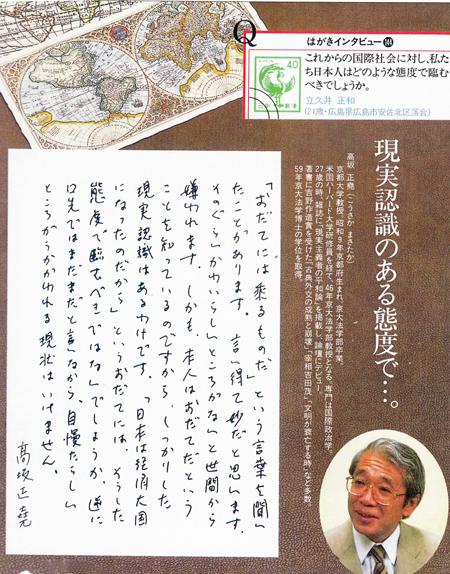 Q
はがきインタビュー
これからの国際社会に対し、私た
ち日本人はどのような態度で臨む
べきでしょうか。
立久井 正和
(21歳・広島県広島市安佐北区落合)
40
現実認識のある態度で…。
高坂 正堯(こうさか まさたか)
京都大学教授。昭和9年京都府生まれ。京大法学部卒業。
米国ハーバード大学研修員を経て、46年京大法学部教授となる。専門は国際政治学。
27歳の時、雑誌に「現実主義者の平和論」を掲載し、論壇にデビュー。
著書に吉野作造賞を受けた「古典外交の成熟と崩壊」「宰相吉田茂」「文明が衰亡する時」など多数。
59年京大法学博士の学位を取得。
「おだてには乗るものだ」という言葉を聞い
たことがあります。言い得て妙だと思います。
そのぐらいかわいらしいところがないと世間から
嫌われます。しかも、本人はおだてだという
ことを知っているのですから しっかりした
現実認識はあるわけです。「日本は経済大国
になったのだから」というおだてには、そうした
態度で臨むべきではないでしょうか。逆に
口先ではまだまだと言いながら、自慢たらしい
ところがうかがわれる現状はいけません。
高坂正堯